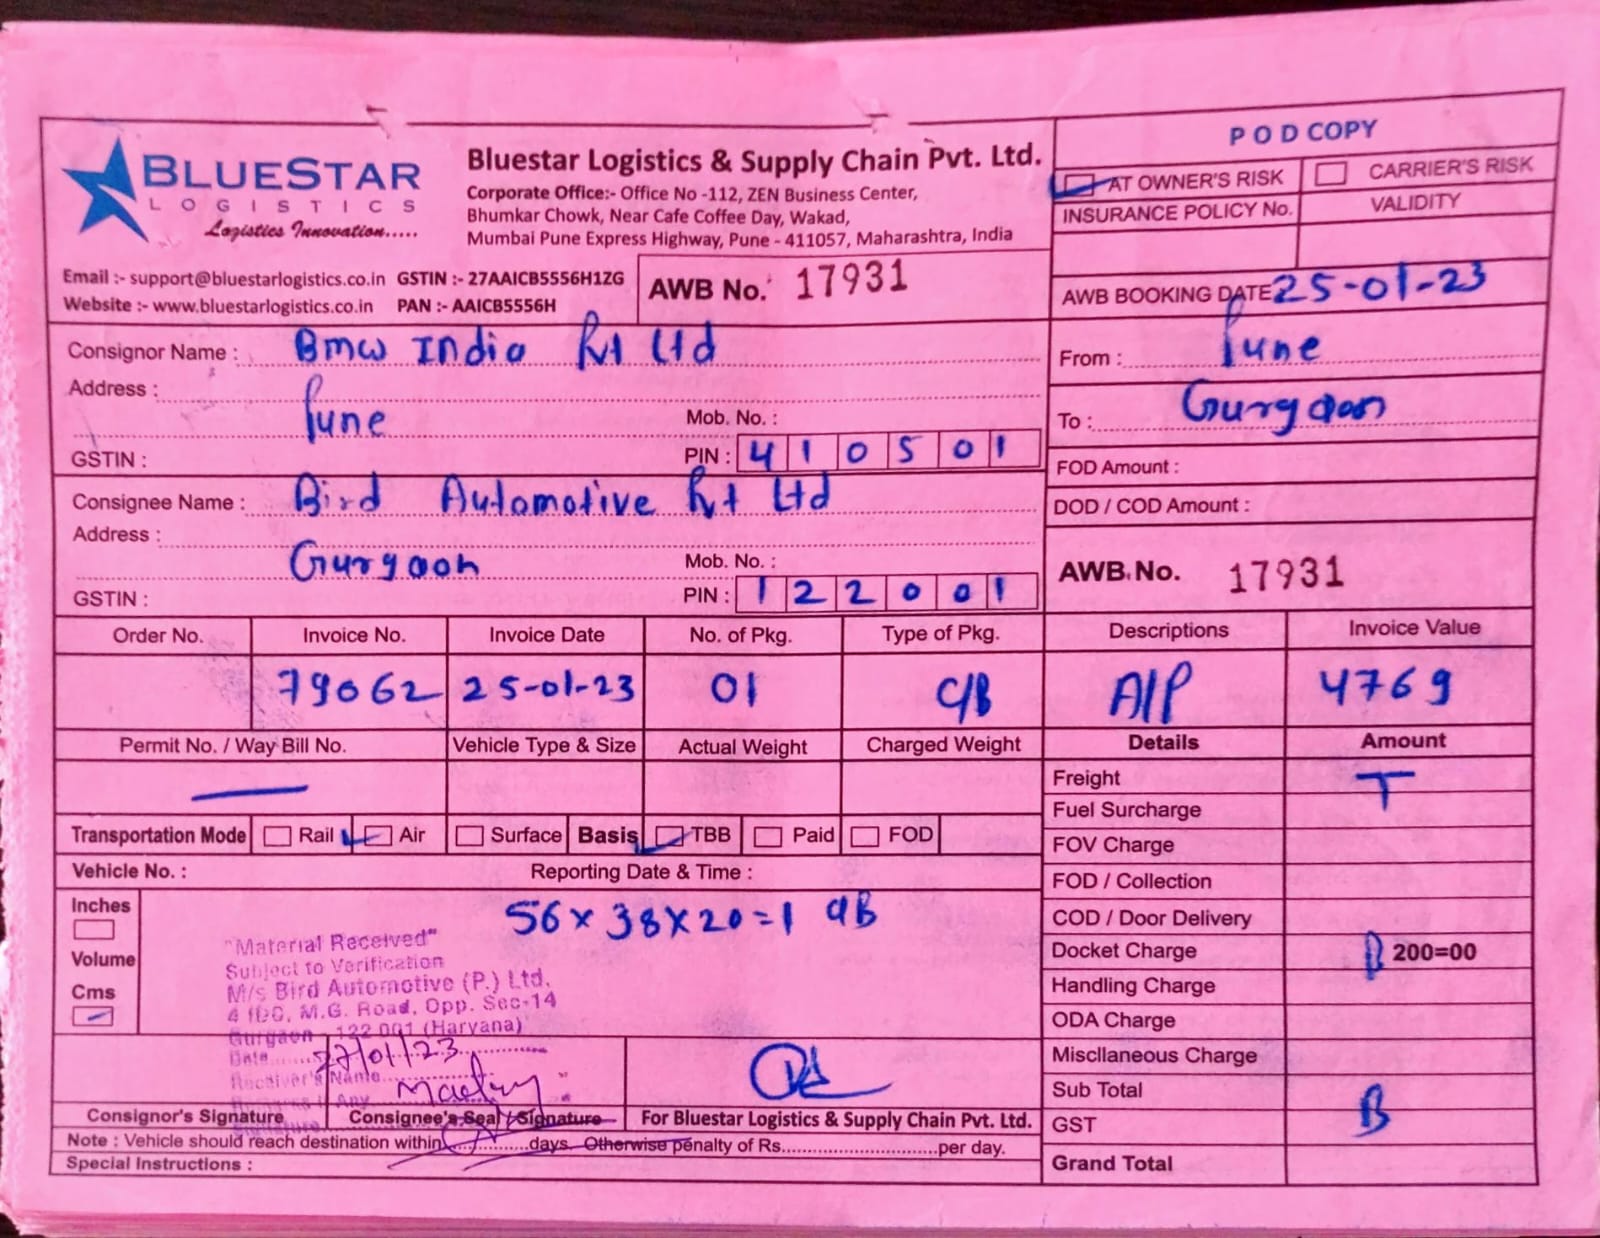 BLUESTAR
LOGISTICS
Logistics Innovation.....
Bluestar Logistics & Supply Chain Pvt. Ltd.
Corporate Office:- Office No -112, ZEN Business Center,
Bhumkar Chowk, Near Cafe Coffee Day, Wakad,
Mumbai Pune Express Highway, Pune - 411057, Maharashtra, India
Email :- support@bluestarlogistics.co.in GSTIN :- 27AAICB5556H1ZG
Website :- www.bluestarlogistics.co.in PAN :- AAICB5556H
AWB No. 17931
POD COPY
AT OWNER'S RISK CARRIER'S RISK
INSURANCE POLICY No. VALIDITY
AWB BOOKING DATE 25-01-23
Consignor Name : Bmw India Pvt Ltd
Address :
Pune
Mob. No. :
GSTIN : PIN : 410501
From : Pune
To : Gurgaon
FOD Amount :
DOD / COD Amount :
Consignee Name : Bird Automotive Pvt Ltd
Address :
Gurgaon
Mob. No. :
GSTIN : PIN : 122001
AWB. No. 17931
Order No. Invoice No. Invoice Date No. of Pkg. Type of Pkg. Descriptions Invoice Value
79062 25-01-23 01 C/B A/P 4769
Permit No. / Way Bill No. Vehicle Type & Size Actual Weight Charged Weight Details Amount
Freight T
Fuel Surcharge
Transportation Mode Rail Air Surface Basis TBB Paid FOD
FOV Charge
Vehicle No. : Reporting Date & Time :
FOD / Collection
Inches
Volume
Cms
56 x 38 x 20 = 1 C/B
COD / Door Delivery
Docket Charge B 200=00
Handling Charge
ODA Charge
Miscllaneous Charge
Sub Total
GST B
Grand Total
"Material Received"
Subject to Verification
M/s Bird Automotive (P.) Ltd.
4 IDC, M.G. Road, Opp. Sec-14
Gurgaon - 122 001 (Haryana)
Date 27/01/23
Receiver's Name
Any
Consignor's Signature Consignee's Seal / Signature For Bluestar Logistics & Supply Chain Pvt. Ltd.
Note : Vehicle should reach destination within............days Otherwise penalty of Rs..............................per day.
Special Instructions :